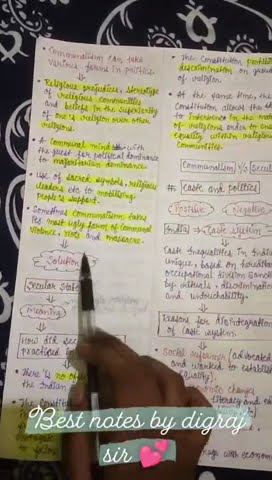 Communalism can take
various forms in politics.
• Religious prejudices, stereotype
of religious communities
and beliefs in the superiority
of one's religion over other
religions.
• A communal mind with
quest for political dominance
to majoritarian dominance.
• Use of sacred symbols, religious
leaders etc to mobilising
people's support.
• Sometimes communalism takes
its most ugly form of communal
violence, riots and massacre.
Solution
Secular State
Meaning
How did sec
practiced i
• There is no of
the Indian
• The Constitu
• The Constitution prohibits
discrimination on
of religion.
• At the same time, the
Constitution allows the
to intervene in the
of religions order to
equality within religious
communities.
Communalism V/s Secul
# Caste and politics
Positive Negative
India → Caste system
Caste inequalities in India
unique, based on hereditary
occupational division sanct
by rituals, discrimination
and untouchability.
Reasons for disintegration
of caste system.
Social reformer (advocated
and wanted to establish
equality).
omic changes
Literacy and
nge with econom
Best notes by digraj
sir 💕